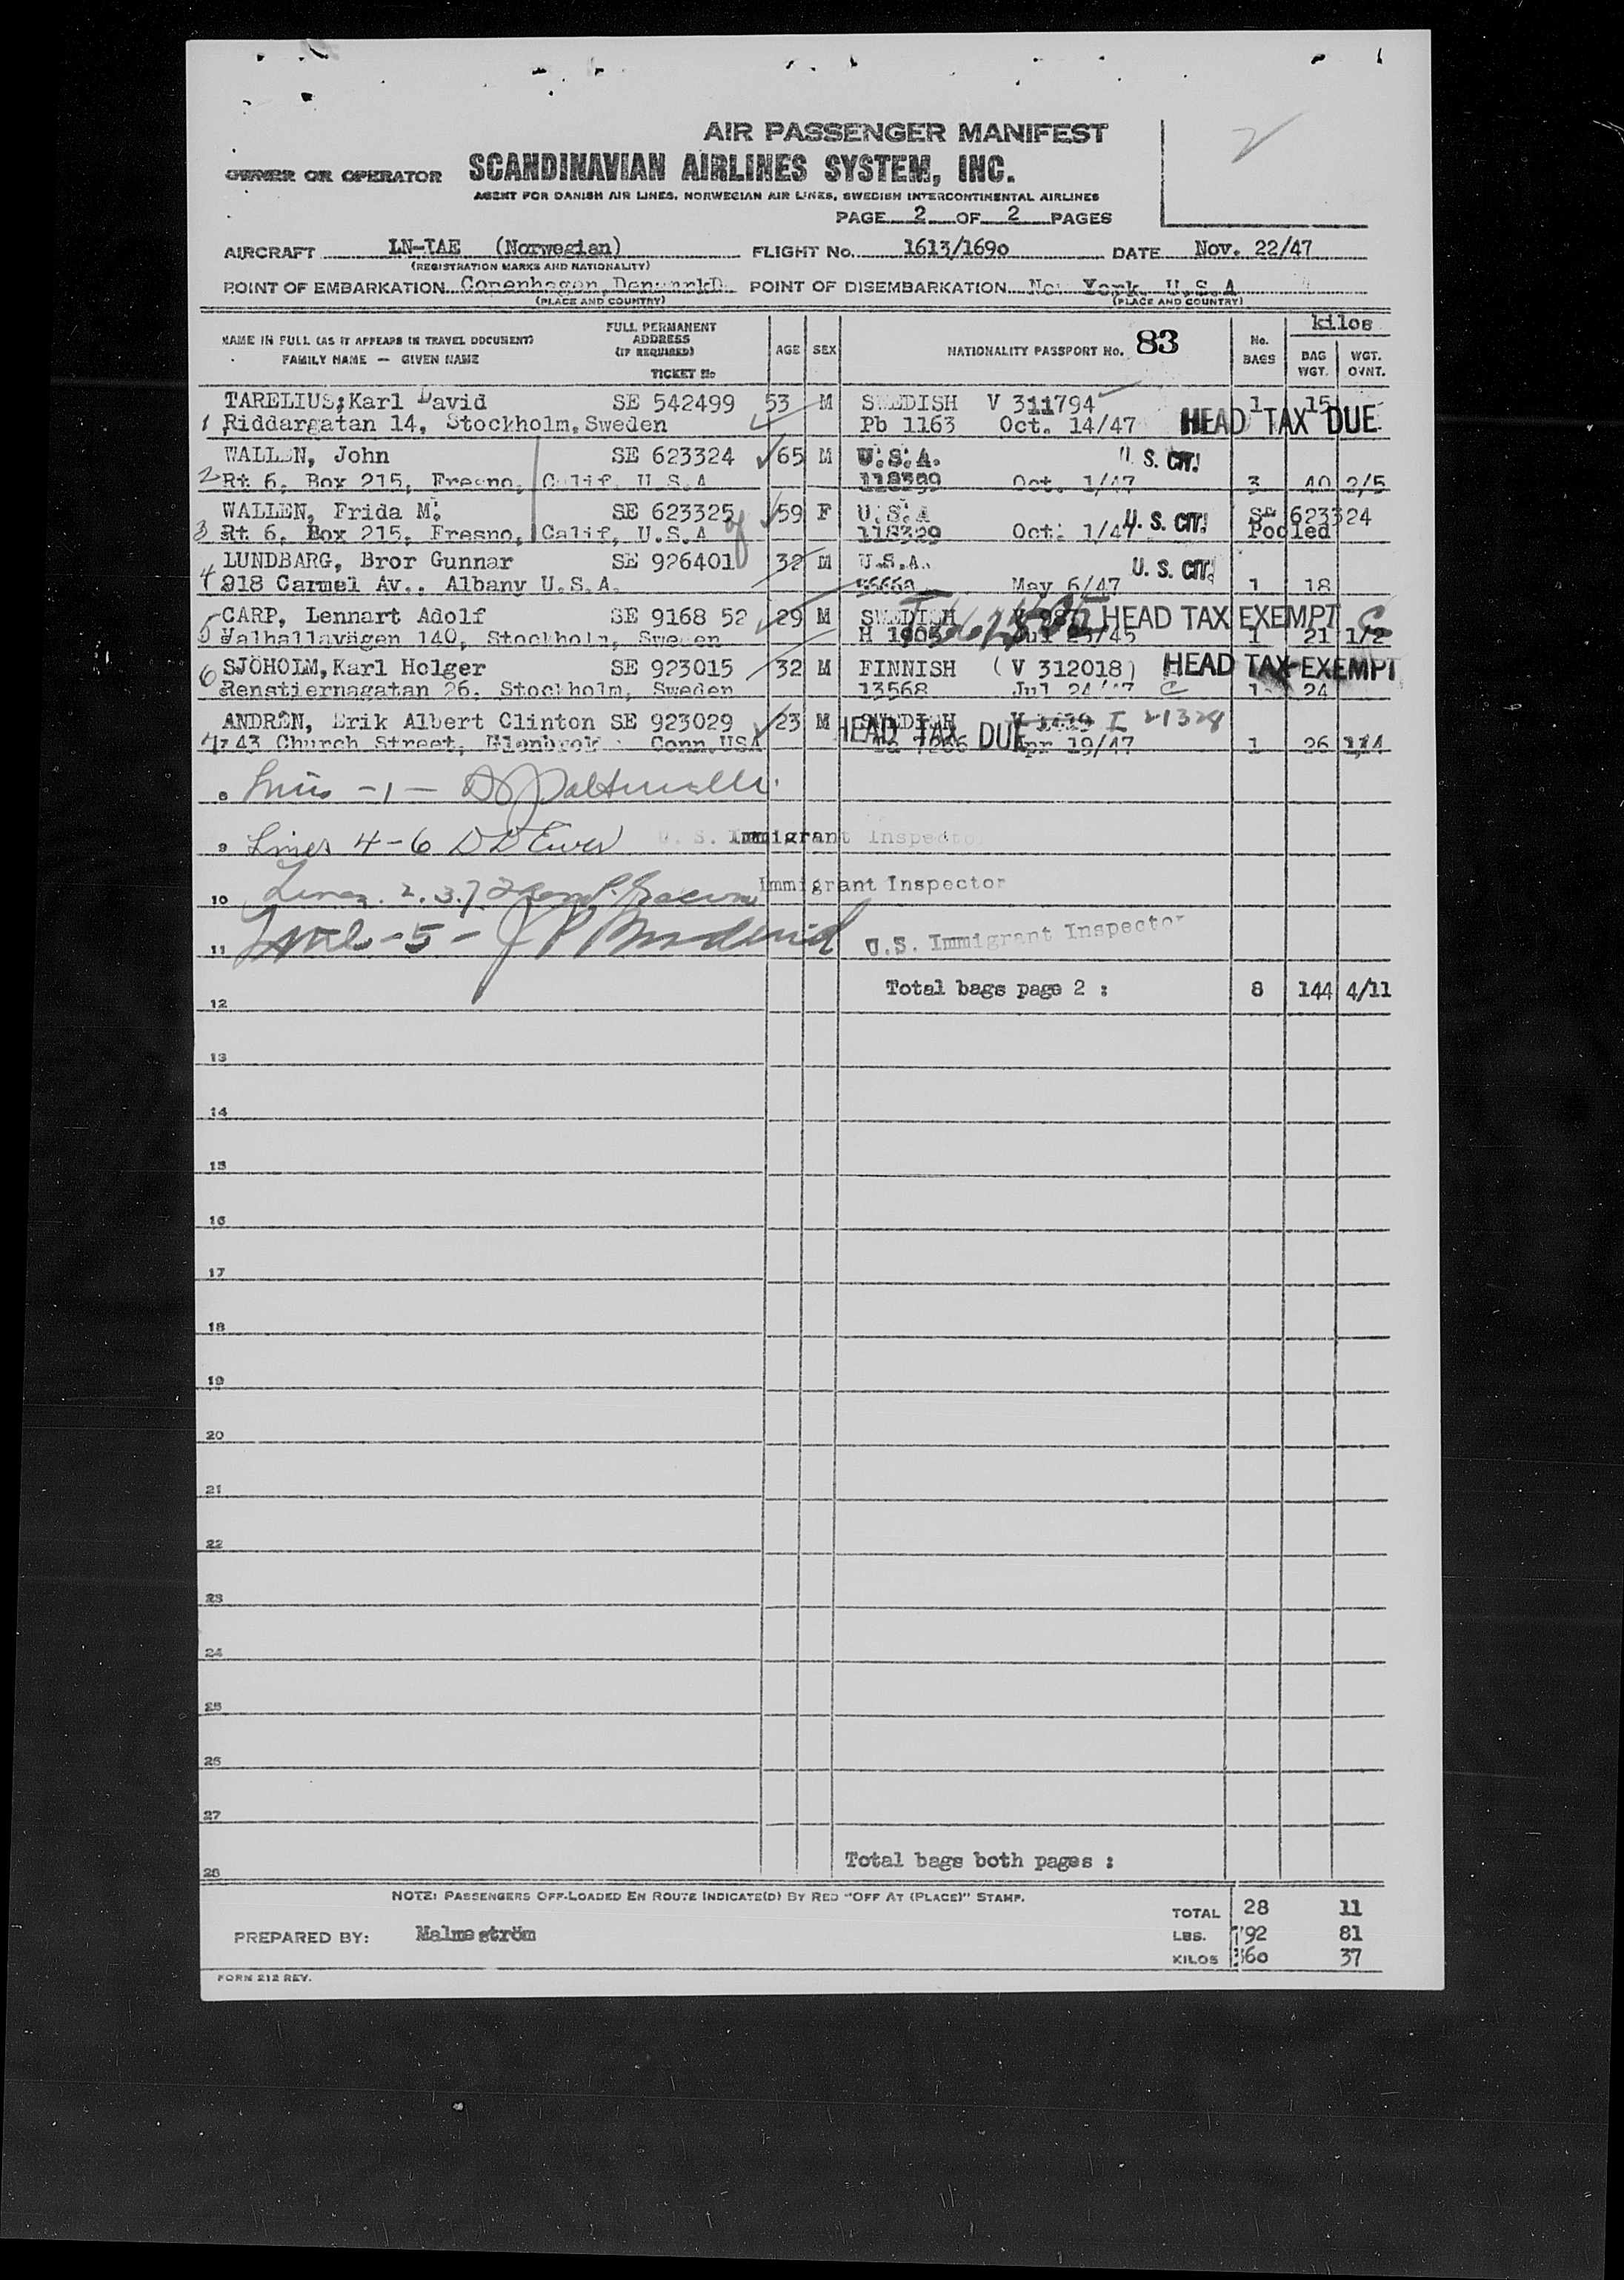 AIR PASSENGER MANIFEST
OWNER OR OPERATOR SCANDINAVIAN AIRLINES SYSTEM, INC.
AGENT FOR DANISH AIR LINES, NORWEGIAN AIR LINES, SWEDISH INTERCONTINENTAL AIRLINES
PAGE 2 OF 2 PAGES
AIRCRAFT LN-IAE (Norwegian) FLIGHT No. 1613/1690 DATE Nov. 22/47
(REGISTRATION MARKS AND NATIONALITY)
POINT OF EMBARKATION Copenhagen, POINT OF DISEMBARKATION New York, U.S.A
(PLACE AND COUNTRY) (PLACE AND COUNTRY)
kilos
NAME IN FULL (AS IT APPEARS IN TRAVEL DOCUMENT) FULL PERMANENT ADDRESS (IF REQUIRED) AGE SEX NATIONALITY PASSPORT No. 83 No. BAGS BAG WGT. WGT. OVNT.
FAMILY NAME — GIVEN NAME TICKET No
TARELIUS, Karl David SE 542499 53 M SWEDISH V 311794 1 15
1 Riddargatan 14, Stockholm, Sweden Pb 1163 Oct. 14/47 HEAD TAX DUE
WALLEN, John SE 623324 65 M U.S.A. U. S. CIT.
2 Rt 6, Box 215, Fresno, Calif. U.S.A Oct. 1/47 3 40 2/5
WALLEN, Frida M. SE 623325 59 F U.S.A U. S. CIT. SE 623324
3 Rt 6, Box 215, Fresno, Calif, U.S.A 118329 Oct. 1/47 Pooled
LUNDBARG, Bror Gunnar SE 926401 32 M U.S.A. U. S. CIT.
4 918 Carmel Av., Albany U.S.A. May 6/47 1 18
CARP, Lennart Adolf SE 9168 52 29 M SWEDISH HEAD TAX EXEMPT C
5 Valhallavägen 140, Stockholm, Sweden H 1905 Jul 23/45 1 21 1/2
SJÖHOLM, Karl Holger SE 923015 32 M FINNISH (V 312018) HEAD TAX EXEMPT
6 Renstiernagatan 26, Stockholm, Sweden 13568 Jul 24/47 C 1 24
ANDRÉN, Erik Albert Clinton SE 923029 23 M SWEDISH I 21328
7 43 Church Street, Glenbrook Conn. USA HEAD TAX DUE Apr 19/47 1 26
8 -1-
9 Lines 4-6 U. S. Immigrant Inspector
10 Lines 2.3.7 Immigrant Inspector
11 Line -5- U.S. Immigrant Inspector
12 Total bags page 2 : 8 144 4/11
13
14
15
16
17
18
19
20
21
22
23
24
25
26
27
28 Total bags both pages :
NOTE: PASSENGERS OFF-LOADED EN ROUTE INDICATE(D) BY RED "OFF AT (PLACE)" STAMP.
TOTAL 28 11
PREPARED BY: Malmström LBS. 792 81
KILOS 360 37
FORM 212 REV.